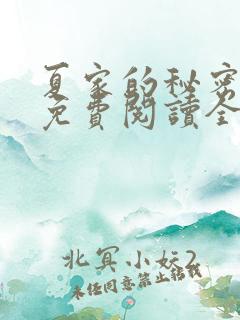 夏家的秘密
免費閱讀全
北冥小妖2
未经同意禁止转载